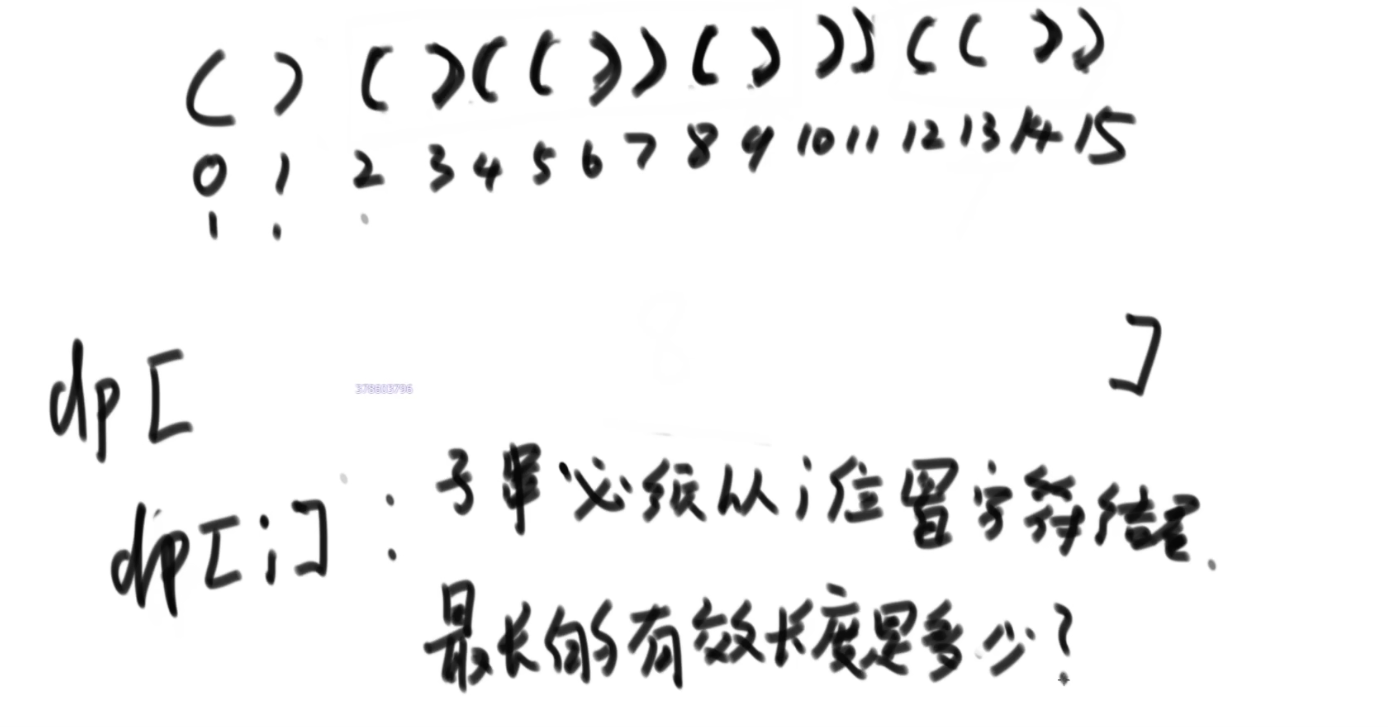 ( ) ( ) ( ( ) ) ( ) ) ) ( ( ) )
0 1 2 3 4 5 6 7 8 9 10 11 12 13 14 15
dp [ ]
378603796
dp[i] : 子串必须从i位置字符结尾.
最长的有效长度是多少?